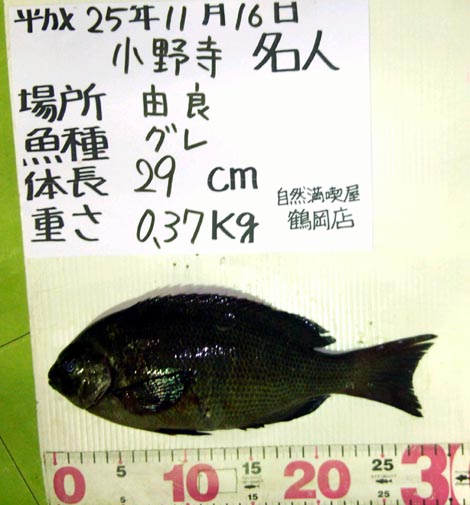 平成25年11月16日
小野寺 名人
場所 由良
魚種 グレ
体長 29 cm
重さ 0.37Kg
自然満喫屋
鶴岡店
0 5 10 15 20 25 3
5 15 25